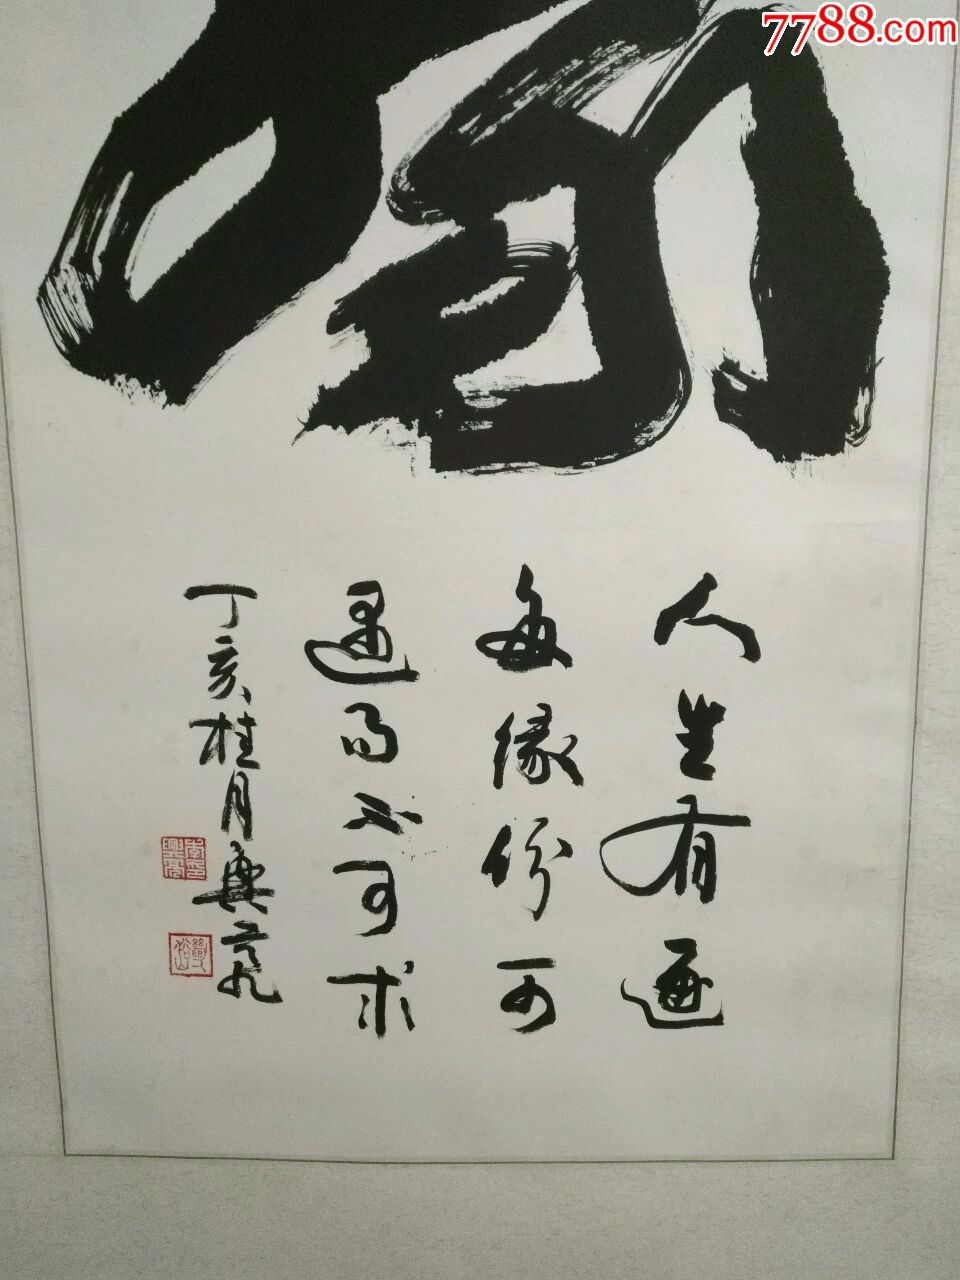 7788.com
人生有
每缘份可
遇而不可求
丁亥桂月興亮